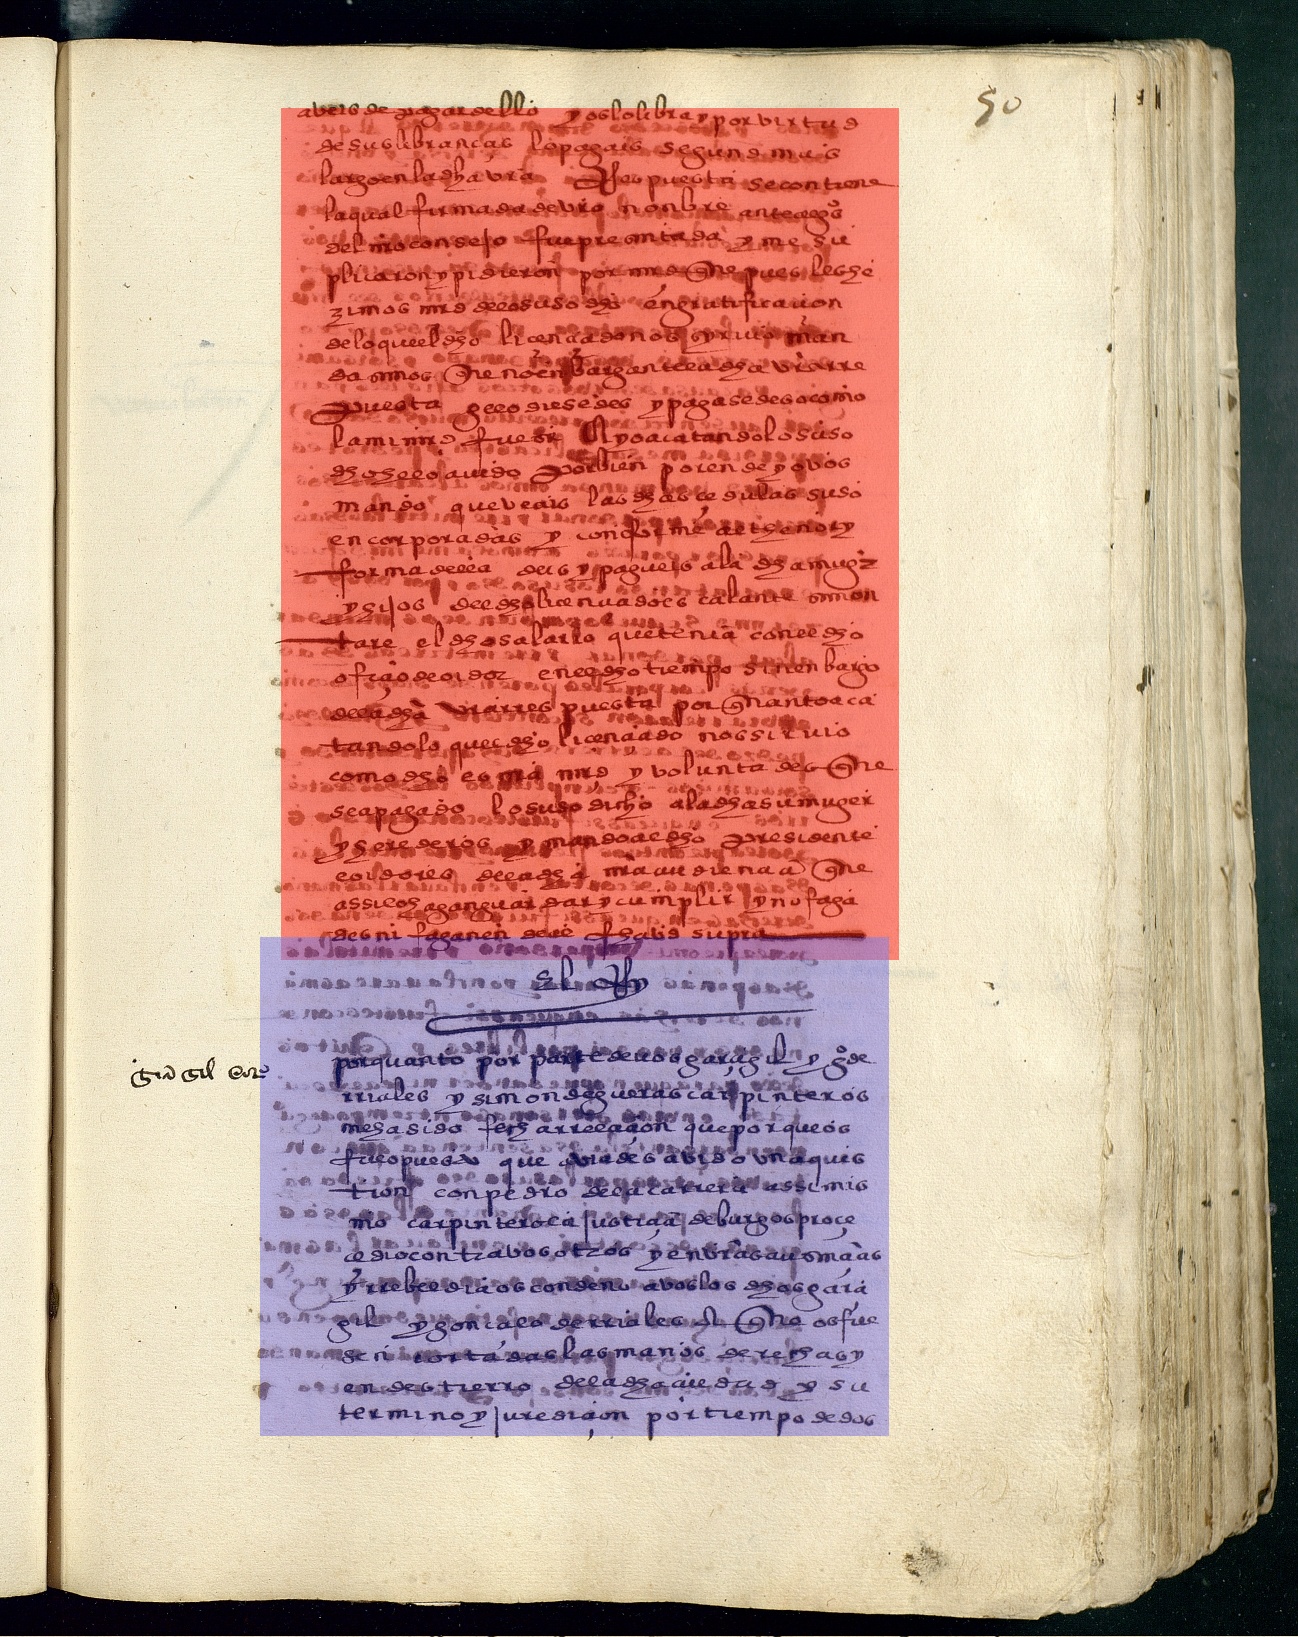 50
aveis de pagar dello y os lo libra y por virtud
de sus libranças lo pagais segund mas
largo en la dha vra Respuesta se contiene
la qual firmada de vro nonbre ante algos
del mi consejo fue presentada y me su
plicaron y pidieron por md que pues les he
zimos md de lo suso dho en gratificacion
de lo que el dho licenciado nos syruio man
dasemos que no enbargante la dha vra rre
puesta ge lo diesedes y pagasedes o como
la mi md fuese E yo acatando lo suso
dho helo auido por bien por ende yo vos
mando que veais las dhas cedulas suso
encorporadas y conforme al thenor y
forma della deis y pagueis a la dha muger
y hijos del dho licenciado escalante e mon
tare el dho salario que tenia con el dho
oficio de oidor en el dho tiempo sin enbargo
de la dha vra rrespuesta por quanto aca
tando lo que el dho licenciado nos siruio
como dho es mi md y voluntad es que
sea pagado lo suso dicho a la dha su muger
y herederos y mando al dho presidente
e oidores de la dha mi audiencia que
assi lo hagan guardar y cumplir y no faga
des ni fagan en del fha vt supra
El Rey
gra gil
por quanto por parte de vos garcia gil y go de
rriales y simon de gueras carpinteros
me ha sido fecha rrelacion que porque os
fue opuesto que auiades auido vna quis
tion con pedro de la carrera assi mis
mo carpintero la justicia de burgos proce
dio contra vosotros y en vras ausencias
y rrebeldia os condeno a vos los dhos garcia
gil y gonçalo de rriales A que os fue
sen cortadas las manos derechas y
en destierro de la dha ciudad y su
termino y juredicion por tiempo de dos